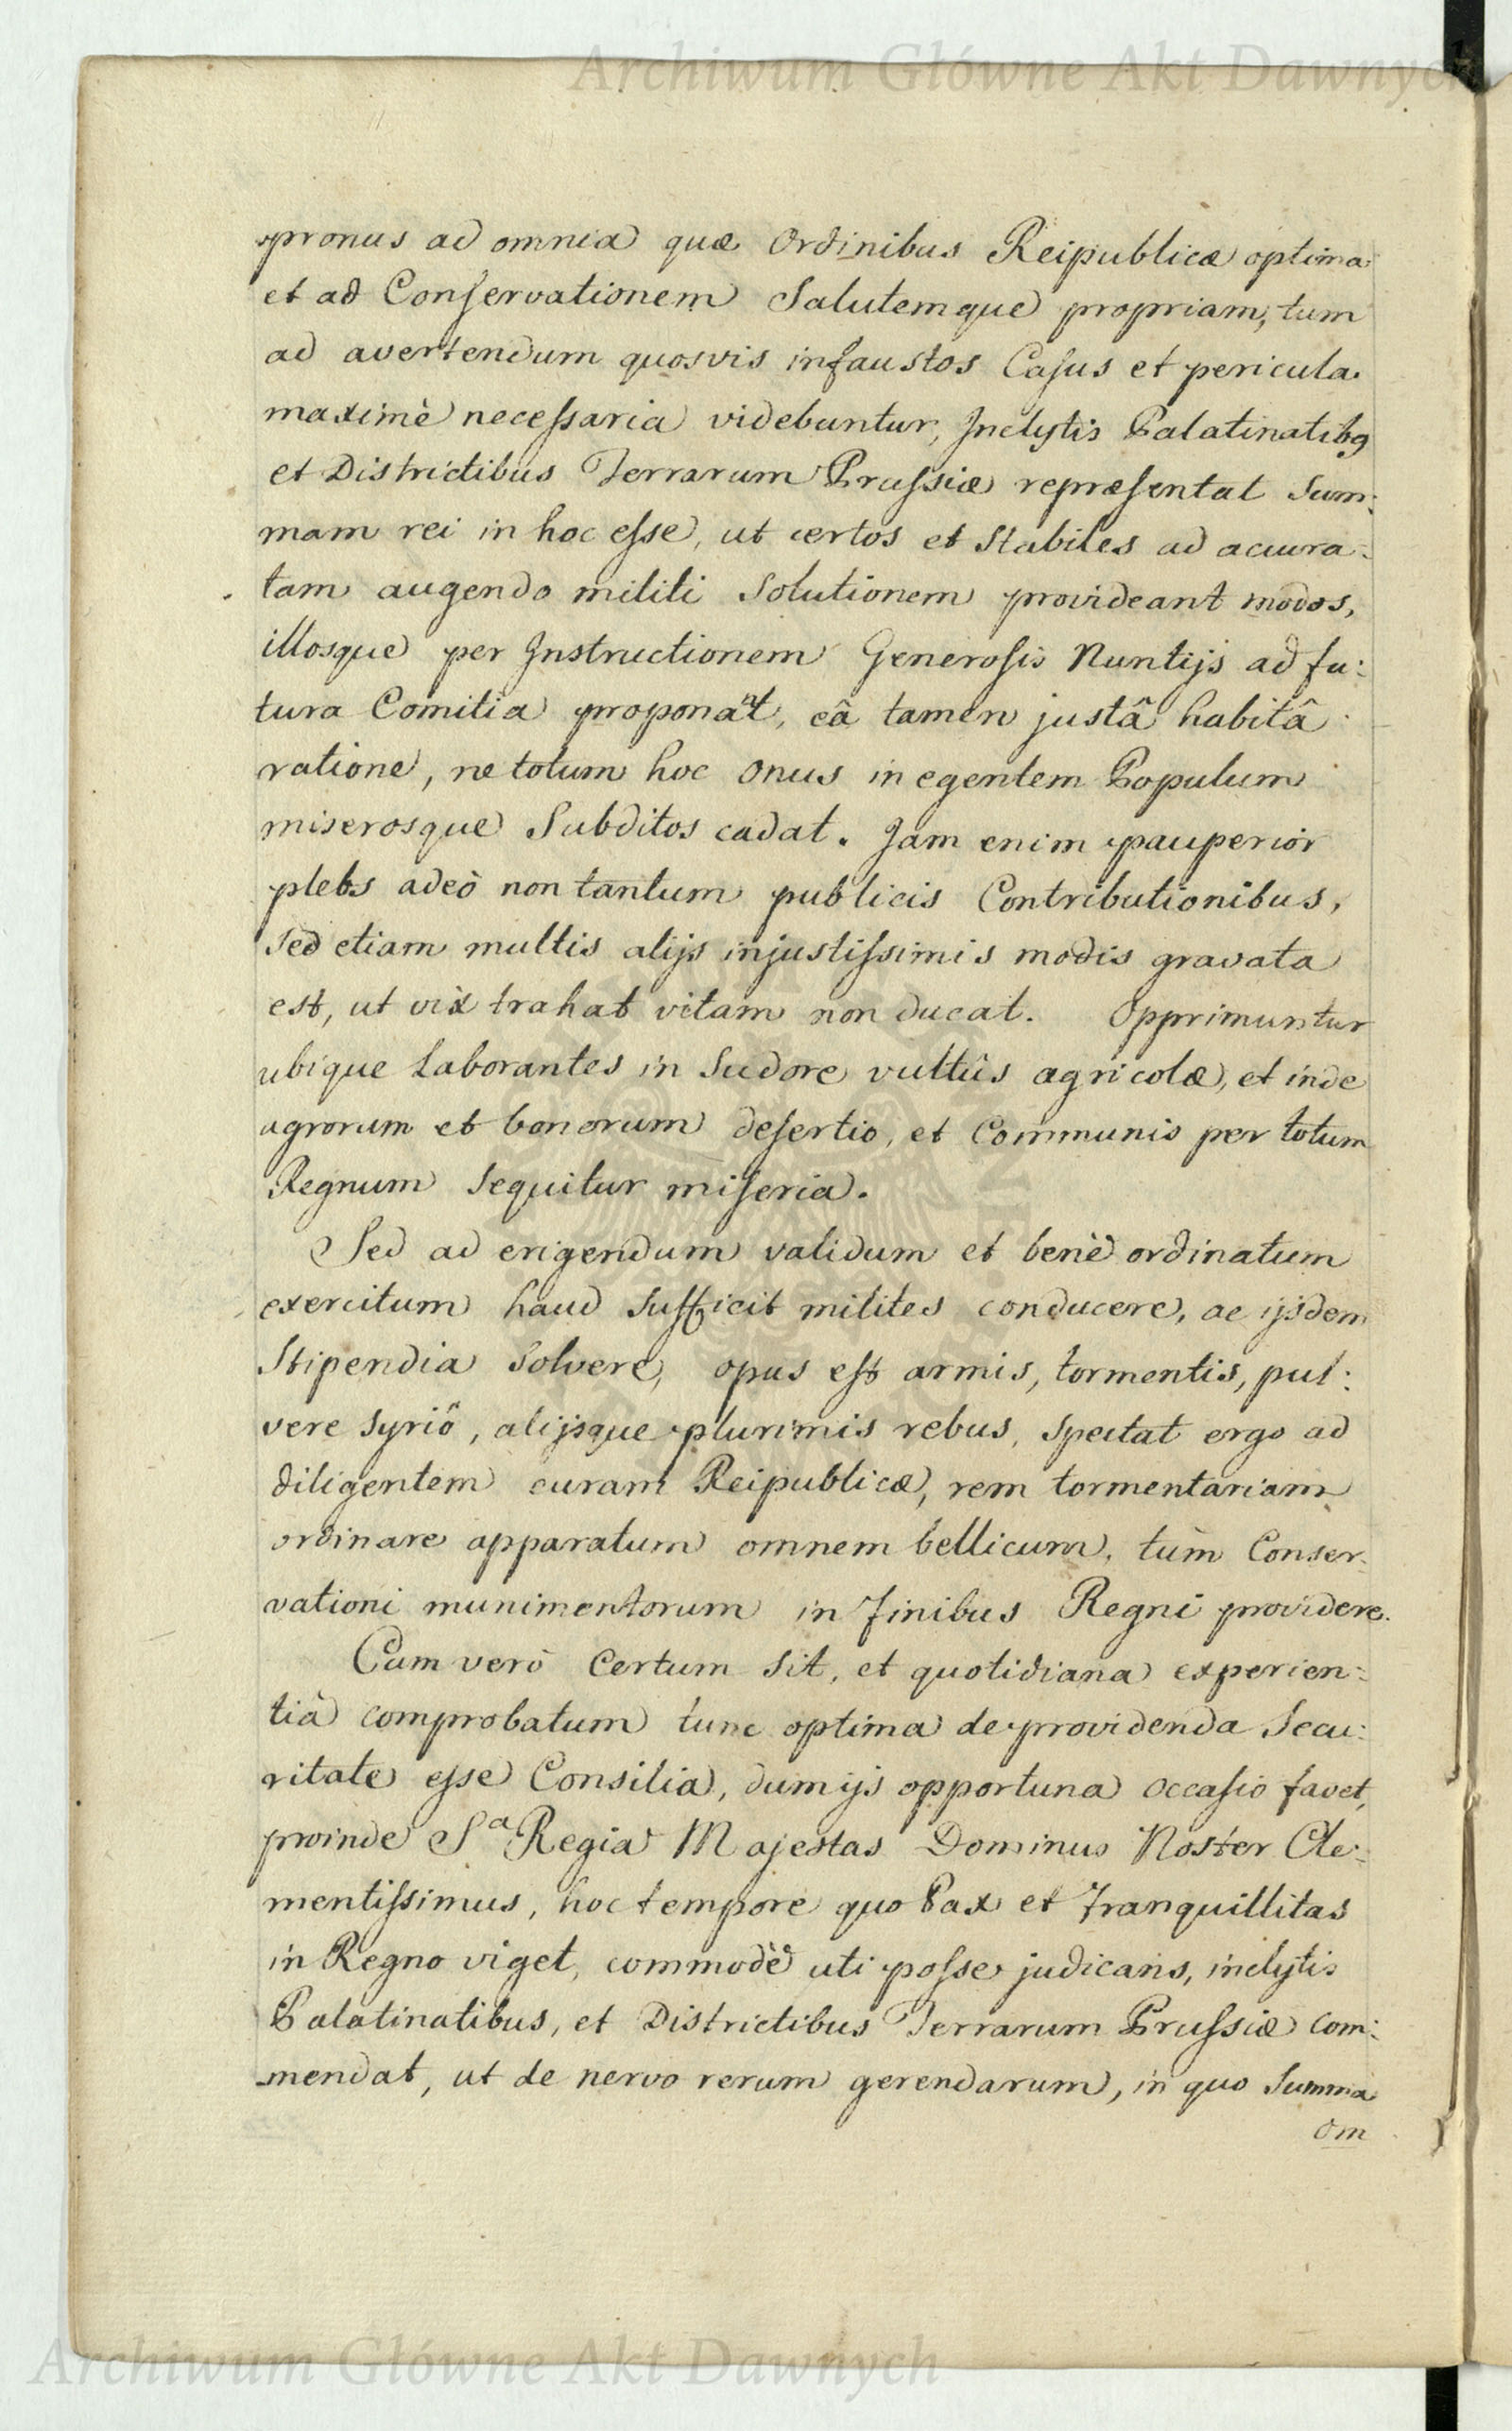 Archiwum Główne Akt Dawnych
pronus ad omnia quæ Ordinibus Reipublicæ optima
et ad Conſervationem Salutemque propriam, tum
ad avertendum quosvis infaustos Caſus et pericula
maximè neceſsaria videbuntur, Inclytis Palatinatibꝫ
et Districtibus Terrarum Pruſsiæ repræſentat Sum:
mam rei in hoc eſse, ut certos et Stabiles ad accura:
tam augendo militi Solutionem provideant modos,
illosque per Instructionem Generoſis Nuntijs ad fu:
tura Comitia proponant, eâ tamen justâ habitâ
ratione, ne totum hoc onus in egentem Populum
miserosque Subditos cadat. Jam enim pauperior
plebs adeò non tantum publicis Contributionibus,
Sed etiam multis alijs injustiſsimis modis gravata
est, ut vix trahat vitam non ducat. Opprimuntur
ubique Laborantes in Sudore vultûs agricolæ, et inde
agrorum et bonorum deſertio, et Communis per totum
Regnum Sequitur miſeria.
Sed ad erigendum validum et benè ordinatum
exercitum haud Sufficit milites conducere, ac ijsdem
Stipendia Solvere, opus eſt armis, tormentis, pul:
vere Syriô, alijsque plurimis rebus, Spectat ergo ad
diligentem curam Reipublicæ, rem tormentariam
ordinare apparatum omnem bellicum, tùm Conser-
vationi munimentorum in Finibus Regni providere.
Cum verò Certum Sit, et quotidiana experien:
tiâ comprobatum tunc optima de providenda Secu:
ritate eſse Consilia, dum ijs opportuna occaſio favet,
proinde Sᵃ Regia Majestas Dominus Noster Cle:
mentiſsimus, hoc tempore quo Pax et Tranquillitas
in Regno viget, commodè uti poſse judicans, inclytis
Palatinatibus, et Districtibus Terrarum Pruſsiæ com:
mendat, ut de nervo rerum gerendarum, in quo Summa
om
Archiwum Główne Akt Dawnych